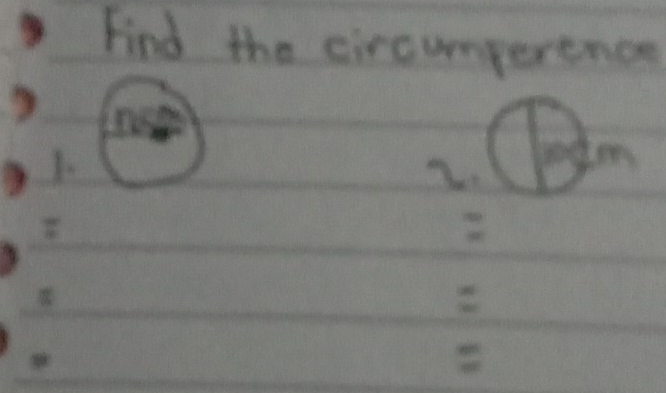 Find the circumference
1.
2.
= =
= =
= =